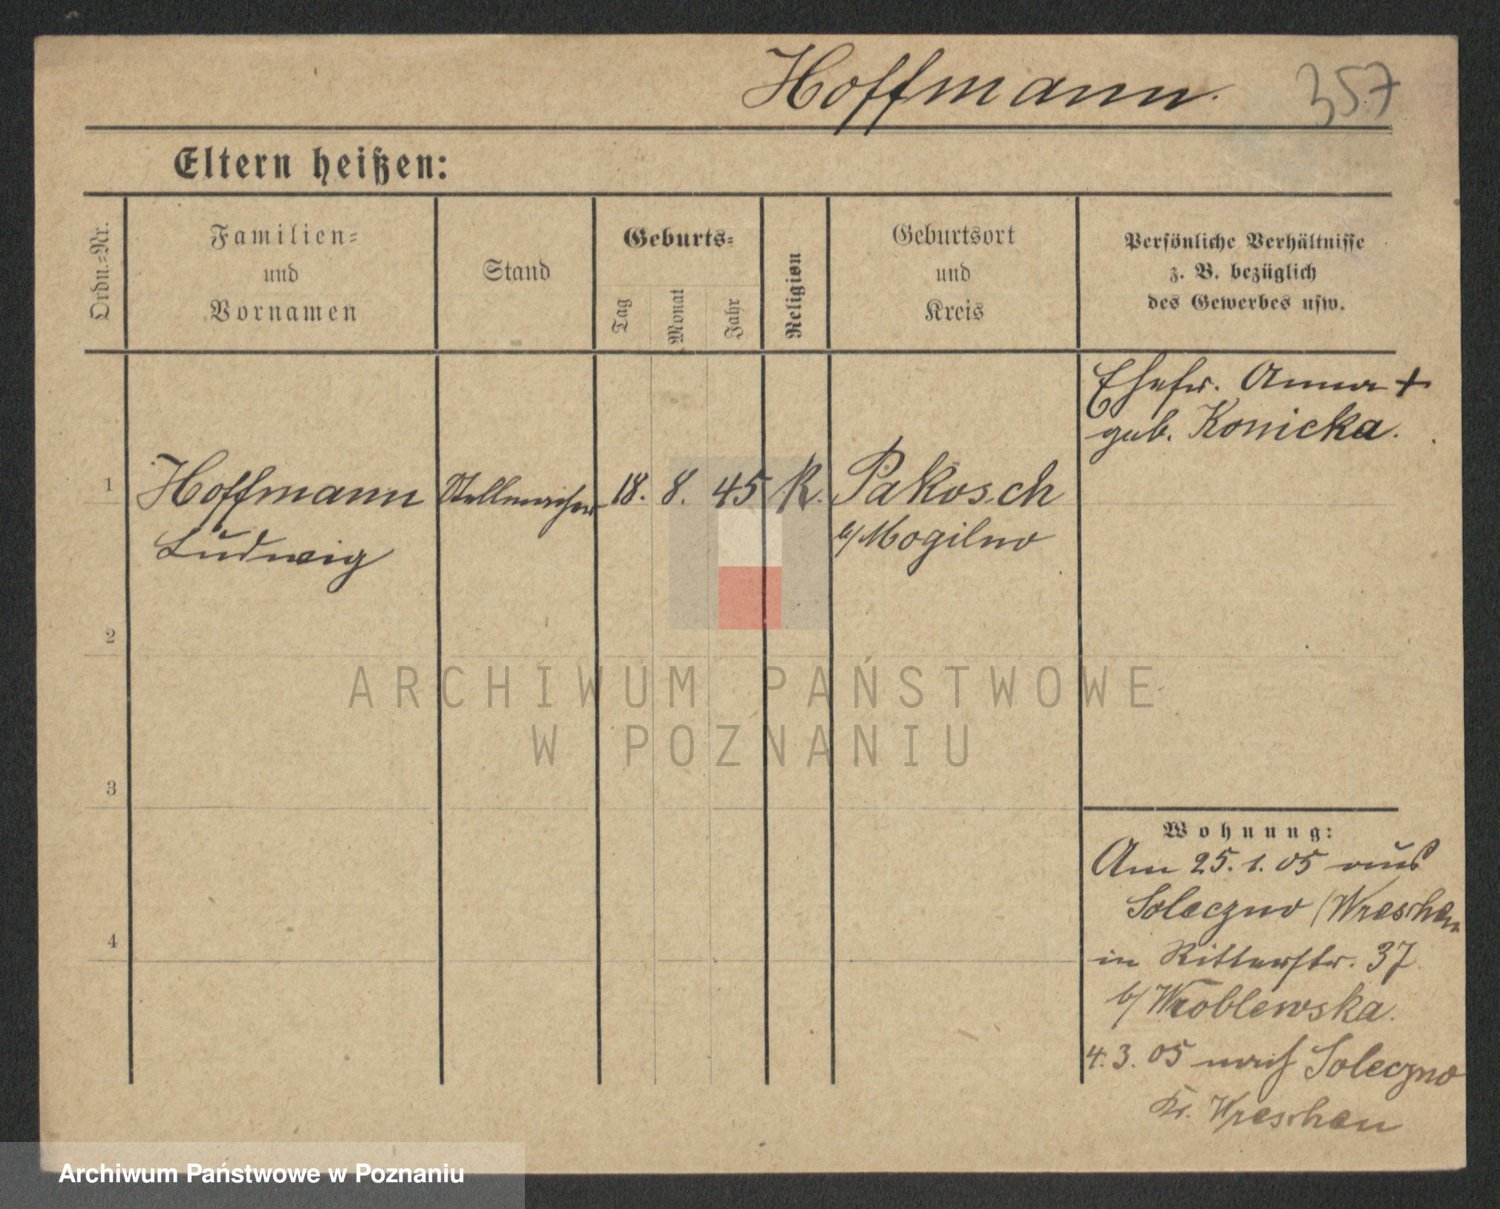 Hoffmann. 357
Eltern heißen:
Ordn.=Nr.
Familien=
und
Vornamen
Stand
Geburts=
Tag
Monat
Jahr
Religion
Geburtsort
und
Kreis
Persönliche Verhältnisse
z. B. bezüglich
des Gewerbes usw.
Ehefr. Anna +
geb. Konicka.
1 Hoffmann Stellmacher 18. 8. 45 K. Pakosch
Ludwig b/Mogilno
2
ARCHIWUM PAŃSTWOWE
W POZNANIU
3
Wohnung:
Am 25. 1. 05 aus
Soleczno (Wreschen
4
in Ritterstr. 37
b/ Wroblewska.
4. 3. 05 nach Soleczno
Kr. Wreschen
Archiwum Państwowe w Poznaniu